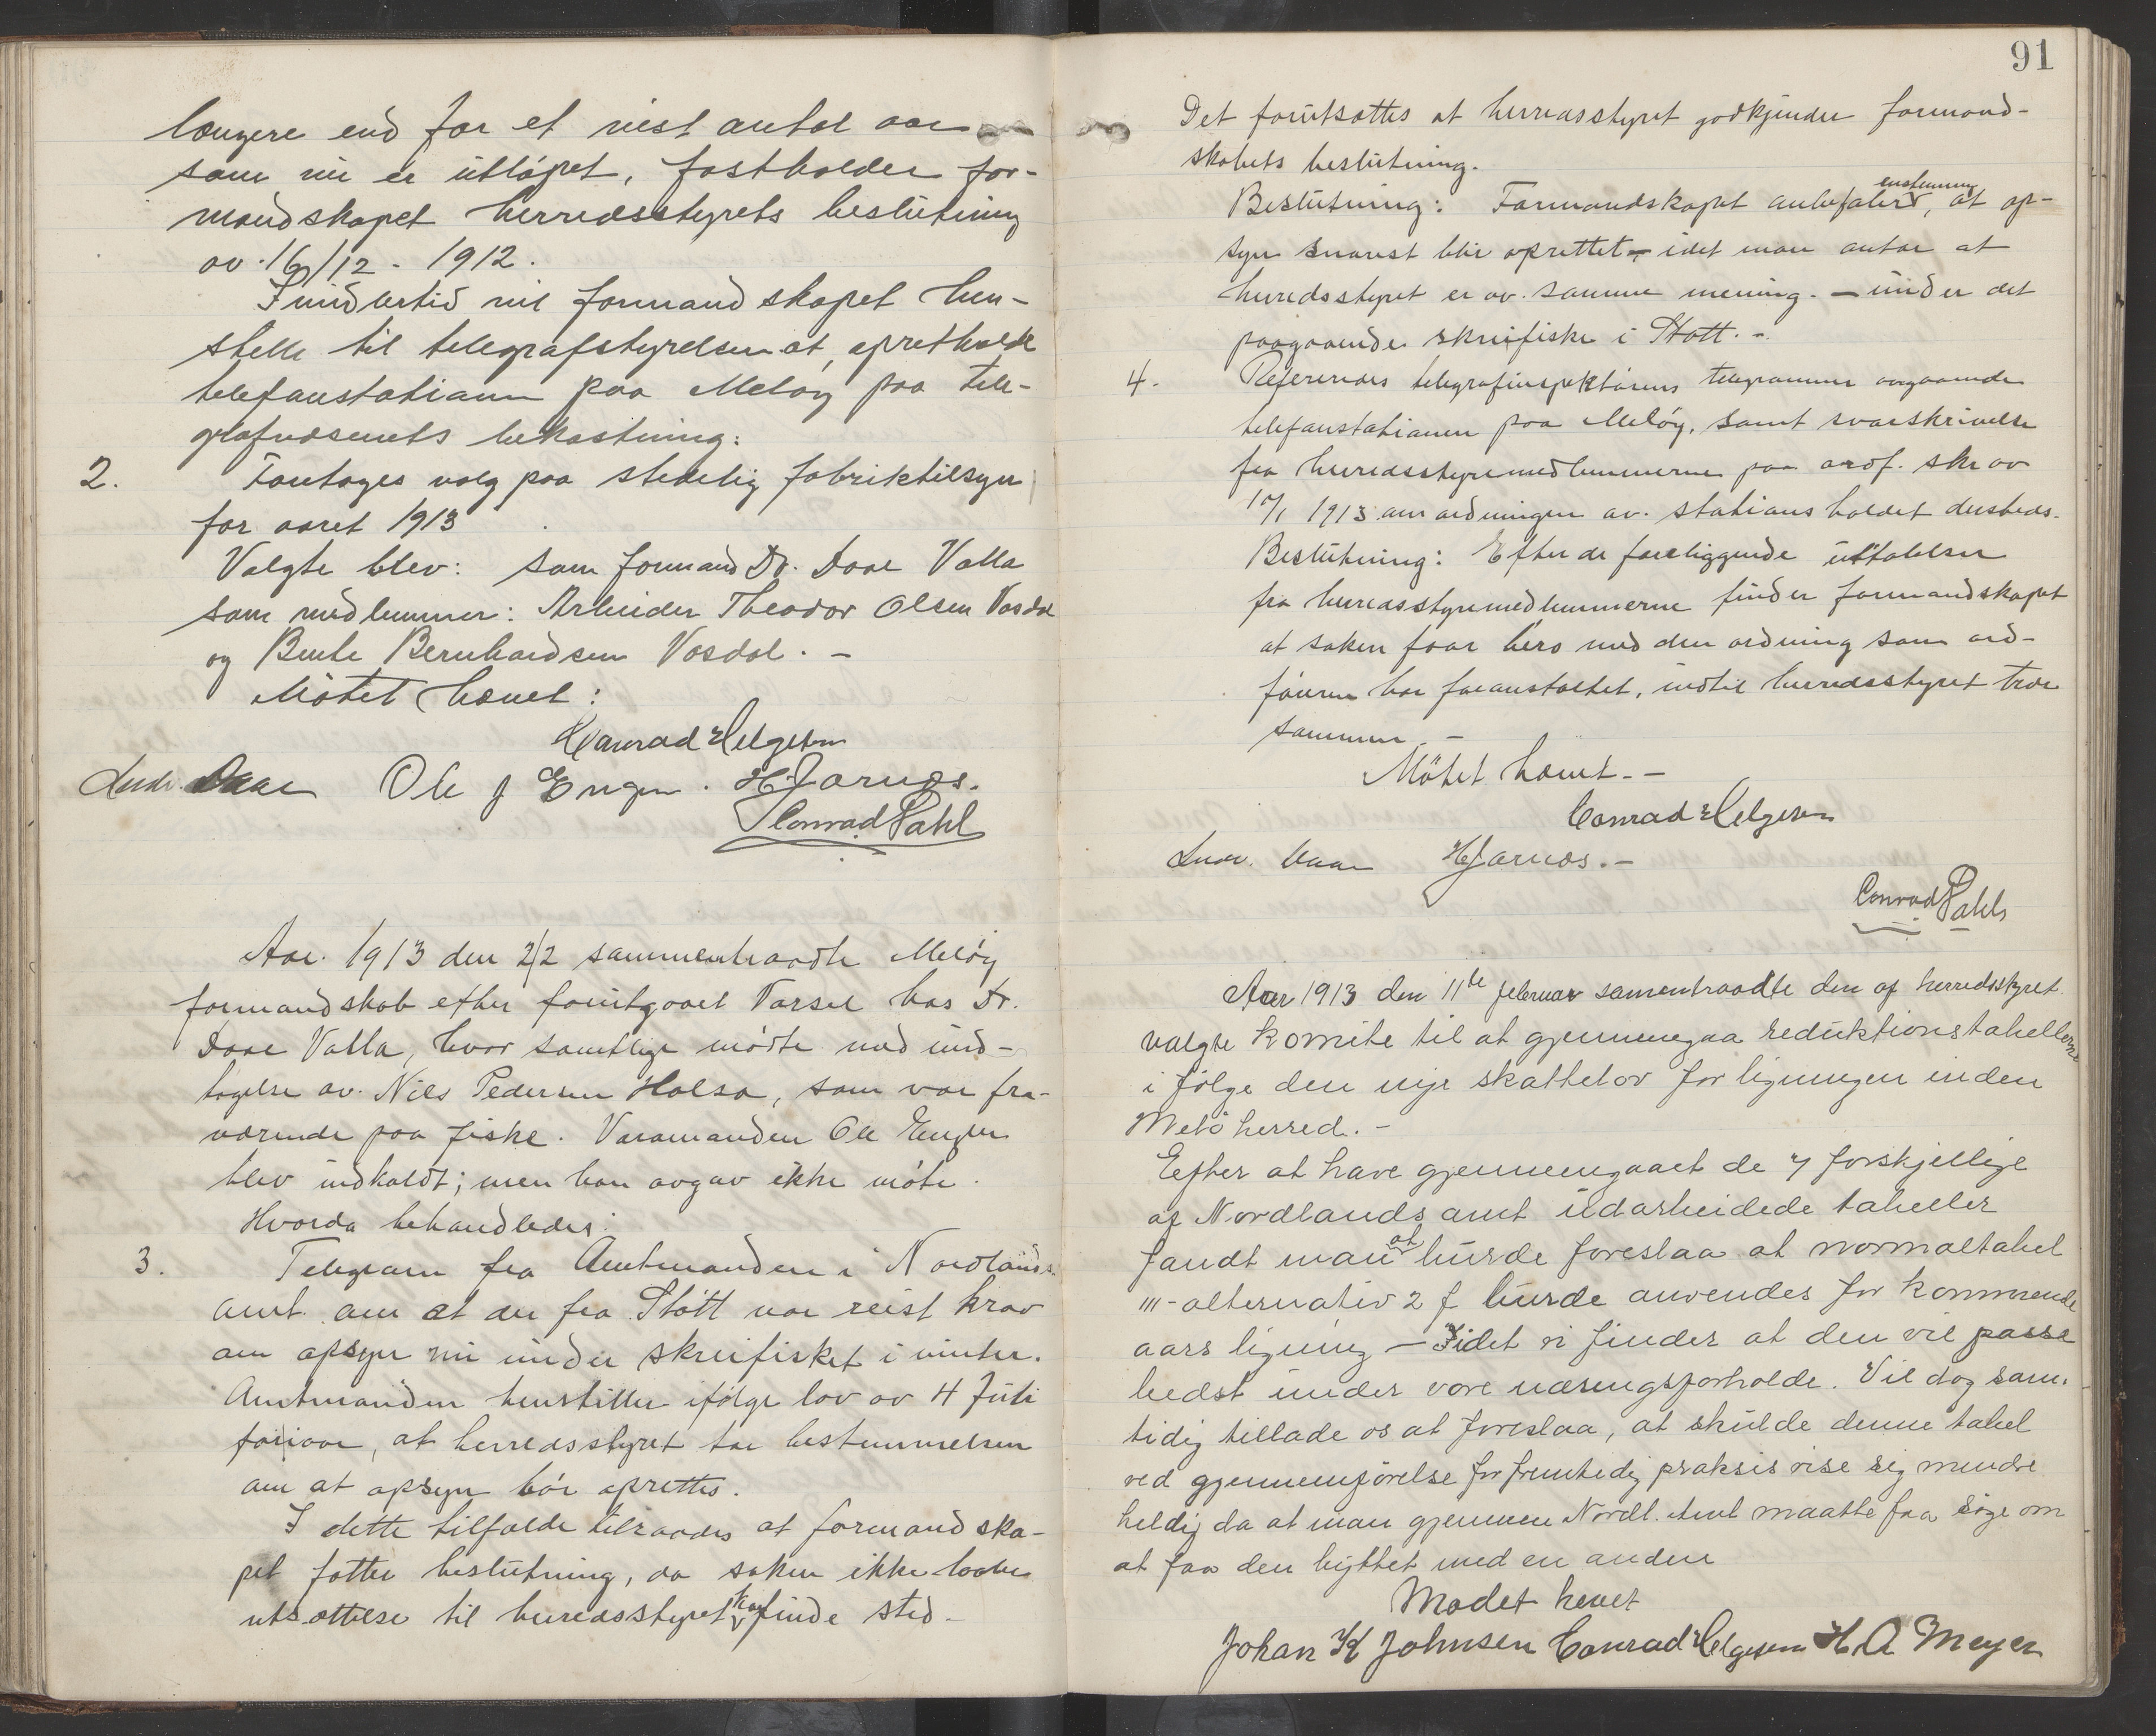 længere end for et visst antal aar
som nu er utløpet, fastholder for-
mandskapet herredsstyrets beslutning
av 16/12 - 1912.
Imidlertid vil formandskapet hen-
stille til telegrafstyrelsen at opretholde
telefonstationen paa Meløy paa tele-
grafvæsenets bekostning.
2. Foretages valg paa stedelig fabriktilsyn
for aaret 1913
Valgte blev: som formand Dr. Daae Valla
som medlemmer: Arbeider Theodor Olsen Vosdal
og Bernhardsen Vosdal. -
Møtet hævet:
Conrad Helgesen
Ludv. Daae Ole J Engen. H Jarnæs.
Conrad Pahl
Aar. 1913 den 2/2 sammentraadte Meløy
formandskab efter forutgaaet Varsel hos Dr.
Daae Valla, hvor samtlige mødte med und-
tagelse av Nils Pedersen Halsa, som var fra-
værende paa fiske. Varamanden Ole Engen
blev indkaldt; men han avgav ikke møte.
Hvorda behandledes:
3. Telegram fra Amtmanden i Nordlands
amt om at der fra Støtt var reist krav
om opsyn nu under skreifisket i vinter.
Amtmanden henstiller ifølge lov av 4 Juli
foriaar, at herredsstyret tar bestemmelsen
om at opsyn bør oprettes.
I dette tilfælde tilraades at formandska-
pet fatter beslutning, da saken ikke
utsættelse til herredsstyret kan finde sted -
91
Det forutsættes at herredsstyret godkjender formand-
skabets beslutning.
Beslutning: Formandskapet anbefaler enstemmig, at op-
syn snarest blir oprettet - idet man antar at
herredsstyret er av samme mening. - under det
paagaaende skreifiske i Støtt. -
4. Refereres telegrafinspektørens telegrammer angaaende
telefonstationen paa Meløy, samt svarskrivelse
fra herredsstyremedlemmerne paa ordf. skr av
10/1 1913 om ordningen av stationsholdet dersteds.
Beslutning: Efter de foreliggende uttalelser
fra herredsstyremedlemmerne finder formandskapet
at saken faar bero med den ordning som ord-
føreren har foranstaltet, indtil herredsstyret trær
sammen. -
Møtet hævet. -
Conrad Helgesen
Ludv. Daae H Jarnæs. -
Conrad Pahl
Aar 1913 den 11te februar samentraadte den af herredsstyret
valgte komite til at gjennemgaa reduktionstabellerne
i følge den nye skattelov for ligningen inden
Melø herred. -
Eefter at have gjennemgaaet de 7 forskjellige
af Nordlands amt udarbeidede tabeller
fandt man at burde foreslaa at normaltabel
III - alternativ 2 f burde anvendes for kommende
aars ligning - Idet vi finder at den vil passe
bedst under vore næringsforholde. Vil dog sam-
tidig tillade os at foreslaa, at skulde denne tabel
ved gjennemførelse for fremtidig praksis vise sig mindre
heldig da at man gjennem Nordl. Amt maatte faa søge om
at faa den byttet med en anden
Mødet hevet
Johan K Johnsen Conrad Helgesen H A Meyer